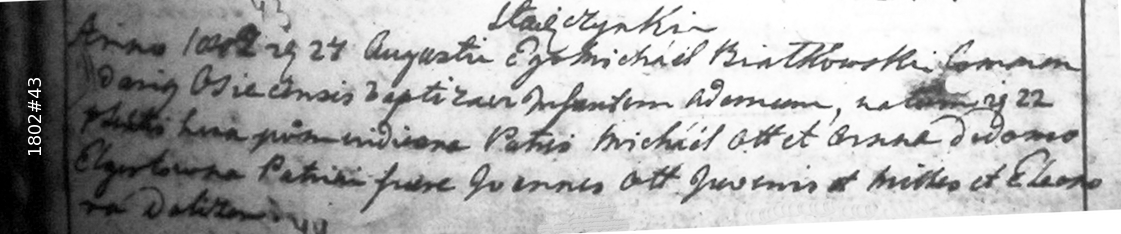 1802#43
43
Stajęczynkin
Anno 1802 29 24 Augusti Ego Michaël Białkowski Commen
darig Osiecensis baptizavi Infantem Ademum, natum 29 22
hora pomeridiana Patris Michaël Ott et Anna de domo
Elgertowna Patrini fuere Joannes Ott Juvenis et Miles et Eleono
ra
44